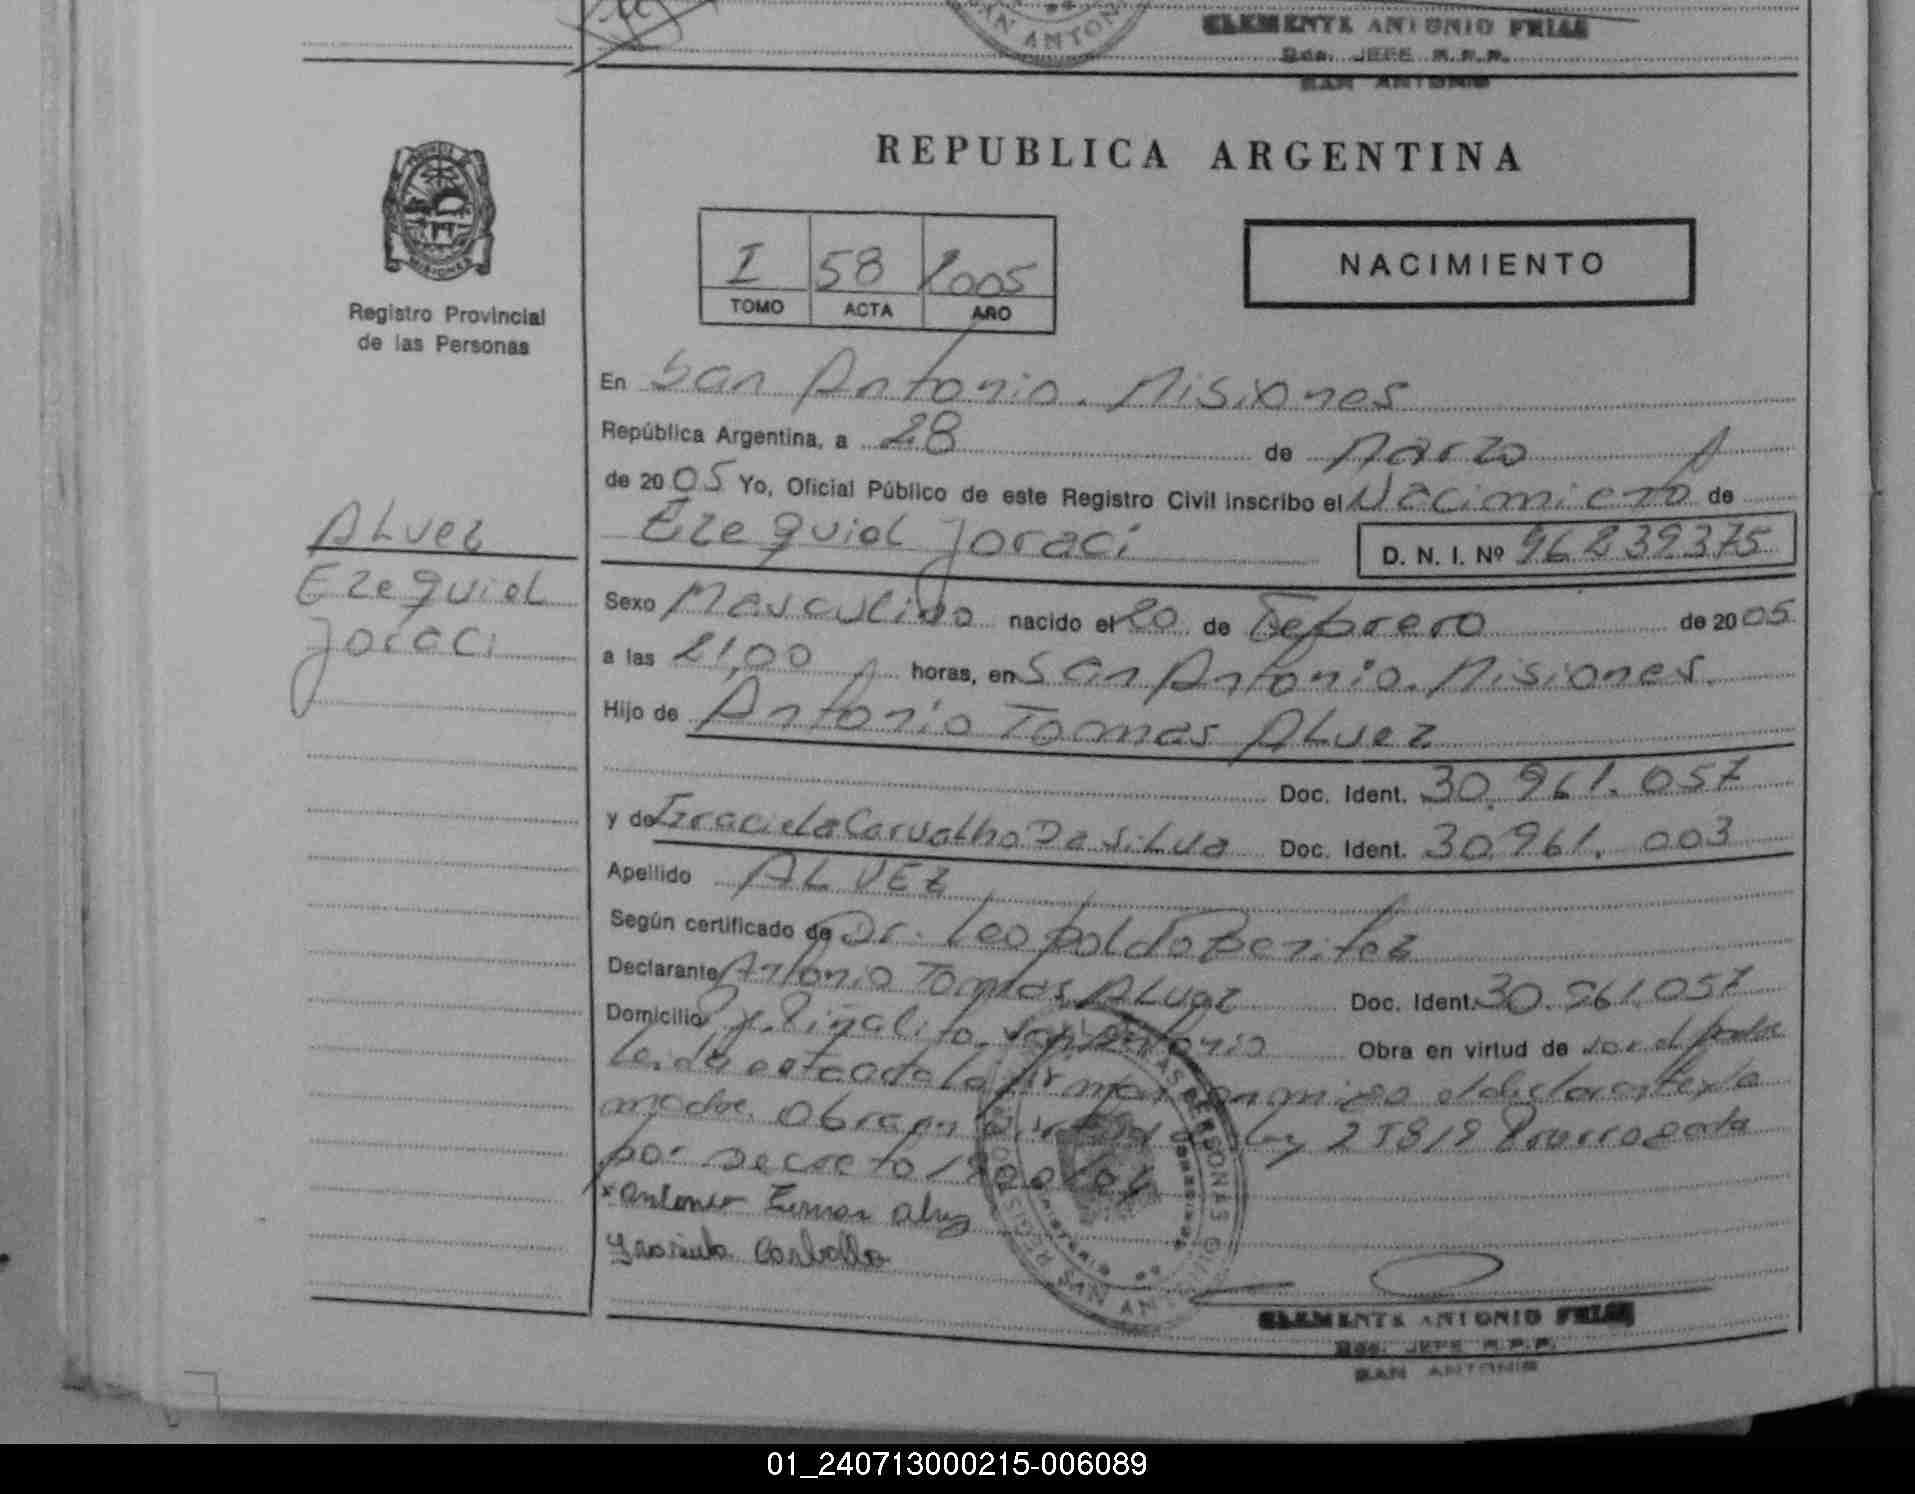 SAN ANTONI
CLEMENTE ANTONIO FRIAS
JEFE R.P.P.
SAN ANTONIO
REPUBLICA ARGENTINA
PROVINCIA DE
MISIONES
Registro Provincial
de las Personas
I 58 2005
TOMO ACTA AÑO
NACIMIENTO
En San Antonio. Misiones
República Argentina, a 28 de Marzo
de 2005 Yo, Oficial Público de este Registro Civil inscribo el Nacimiento de
Ezequiel Joraci D. N. I. Nº 96239375
ALvez
Ezequiel
Joraci
Sexo Masculino nacido el 20 de Febrero de 2005
a las 21,00 horas, en San Antonio. Misiones.
Hijo de Antonio Tomas ALvez
Doc. Ident. 30.961.057
y de Graciela Carvalho Da Silva Doc. Ident. 30.961.003
Apellido ALVEZ
Según certificado de Dr. Leopoldo Benitez
Declarante Antonio Tomas ALvez Doc. Ident. 30.961.057
Domicilio Piñalito San Antonio Obra en virtud de ser el padre
Leida esta acta la firman conmigo el declarante y la
madre. Obra en virtud de ley 25819 Prorrogada
por Decreto
Antonio Tomas Alvez
Graciela Carballo
CLEMENTE ANTONIO FRIAS
JEFE R.P.P.
SAN ANTONIO
01_240713000215-006089